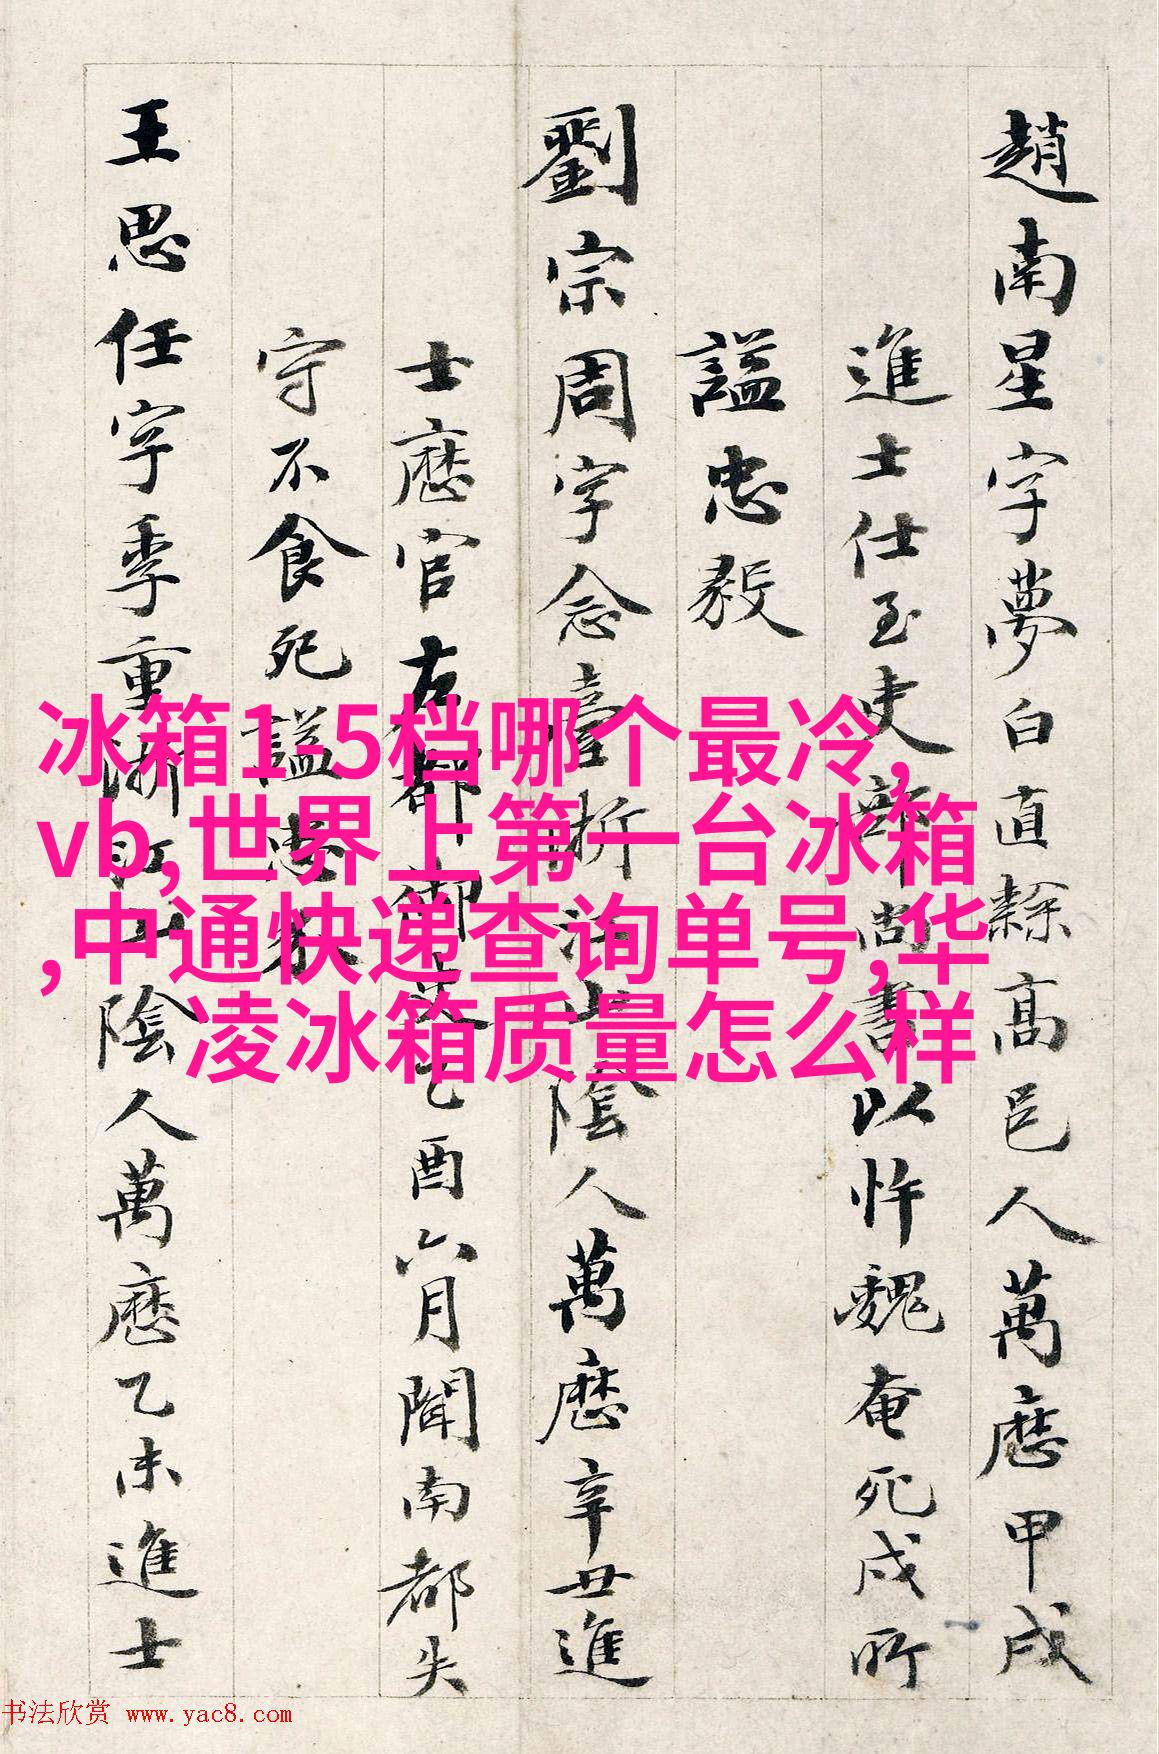 趙南星字夢白直隸高邑人萬曆甲戌
進士仕至吏部尚書以忤魏奄死戍所
謚忠毅
劉宗周字念臺浙江山陰人萬曆辛丑進
士歷官左都御史乙酉六月聞南都失
守不食死謚忠
王思任字季重浙江山陰人萬曆乙未進士
冰箱1-5档哪个最冷,
vb,世界上第一台冰箱
,中通快递查询单号,华
凌冰箱质量怎么样
书法欣赏 www.yac8.com